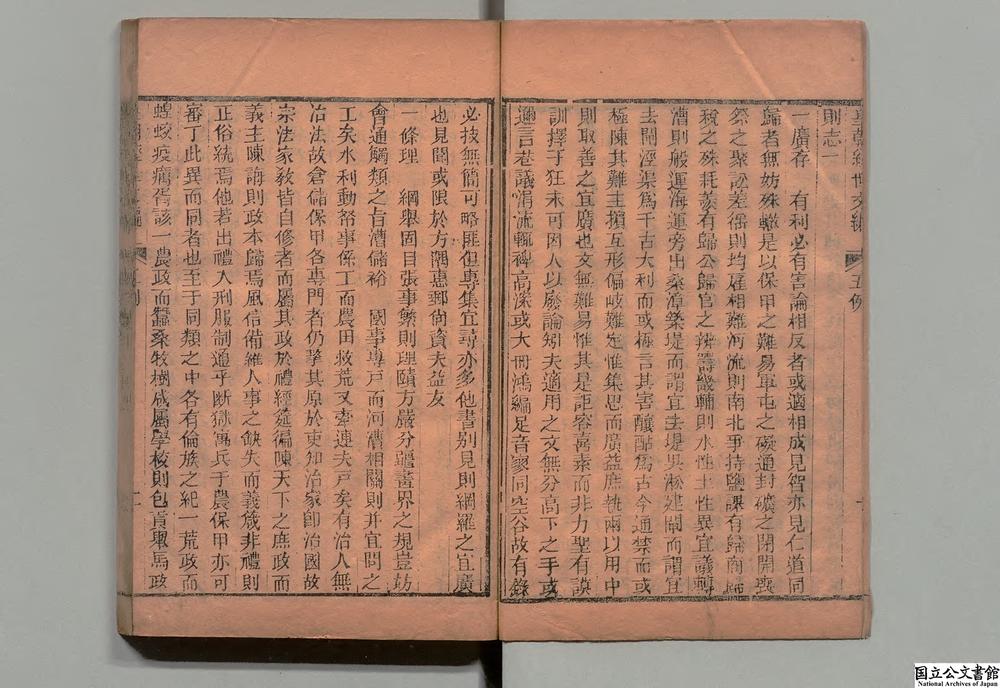 皇朝經世文編 五例
則志一
一廣存 有利必有害論相反者或適相成見智亦見仁道同
歸者無妨殊轍是以保甲之難易軍屯之礙通封礦之閉開喪
祭之聚訟差徭則均雇相難河流則南北爭持鹽課有歸商歸
稅之殊耗羨有歸公歸官之辨籌畿輔則水性土性異宜議轉
漕則般運海運旁出桑漳築堤而謂宜去堤吳淞建閘而謂宜
去閘涇渠爲千古大利而或極言其害釀酤爲古今通禁而或
極陳其難主擯互形偏岐難定惟集思而廣益庶執兩以用中
則取善之宜廣也文無難易惟其是詎容喜素而非力聖有謨
訓擇于狂未可因人以廢論矧夫適用之文無分高下之手或
邇言巷議涓流輒裨高深或大冊鴻編足音寥同空谷故有錄
必技無簡可略匪但專集宜尋亦多他書別見則網羅之宜廣
也見聞或限於方隅惠郵尙資夫益友
一條理 綱舉固目張事繁則理賾方嚴分疆畫界之規豈妨
會通觸類之旨漕儲裕 國事專戸而河漕相關則并宜問之
工矣水利動帑事係工而農田救荒又牽連夫戸矣有治人無
治法故倉儲保甲各專門者仍挈其原於吏知治家卽治國故
宗法家敎皆自修者而屬其政於禮經筵徧陳天下之庶政而
義主陳誨則政本歸焉風信備維人事之缺失而義箴非禮則
正俗統焉他若出禮入刑服制通乎斷獄寓兵于農保甲亦可
審丁此異而同者也至于同類之中各有倫族之紀一荒政而
蝗蛟疫癘胥該一農政而蠶桑牧樹咸屬學校則包貢舉馬政